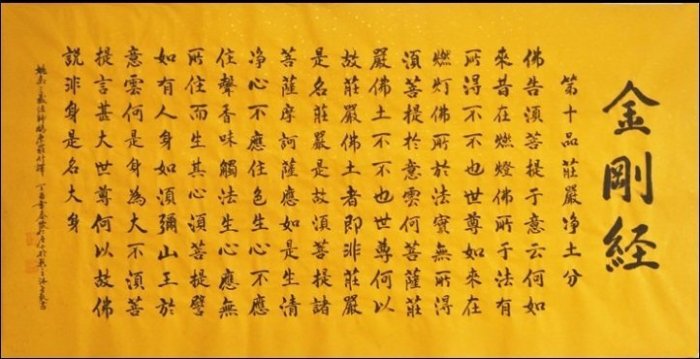 金剛経
第十品莊嚴净土分
佛告須菩提于意云何如
來昔在燃燈佛所于法有
所得不不也世尊如來在
燃灯佛所於法實無所得
須菩提於意雲何菩薩莊
嚴佛土不不也世尊何以
故莊嚴佛土者即非莊嚴
是名莊嚴是故須菩提諸
菩薩摩訶薩應如是生清
净心不應住色生心不應
住聲香味觸法生心應無
所住而生其心須菩提譬
如有人身如須彌山王於
意雲何是身為大不須菩
提言甚大世尊何以故佛
說非身是名大身
姚秦三藏法師鳩摩羅什譯 丁酉年春